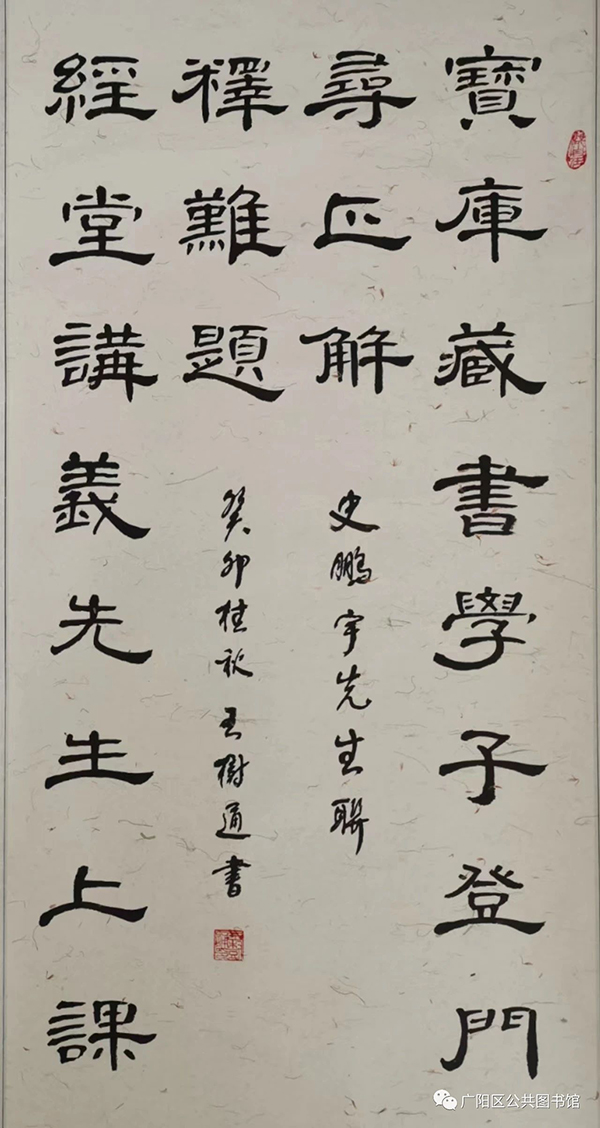 寶庫藏書學子登門
尋正解
經堂講義先生上課
釋難題
史鵬宇先生聯
癸卯桂秋王樹通書
广阳区公共图书馆